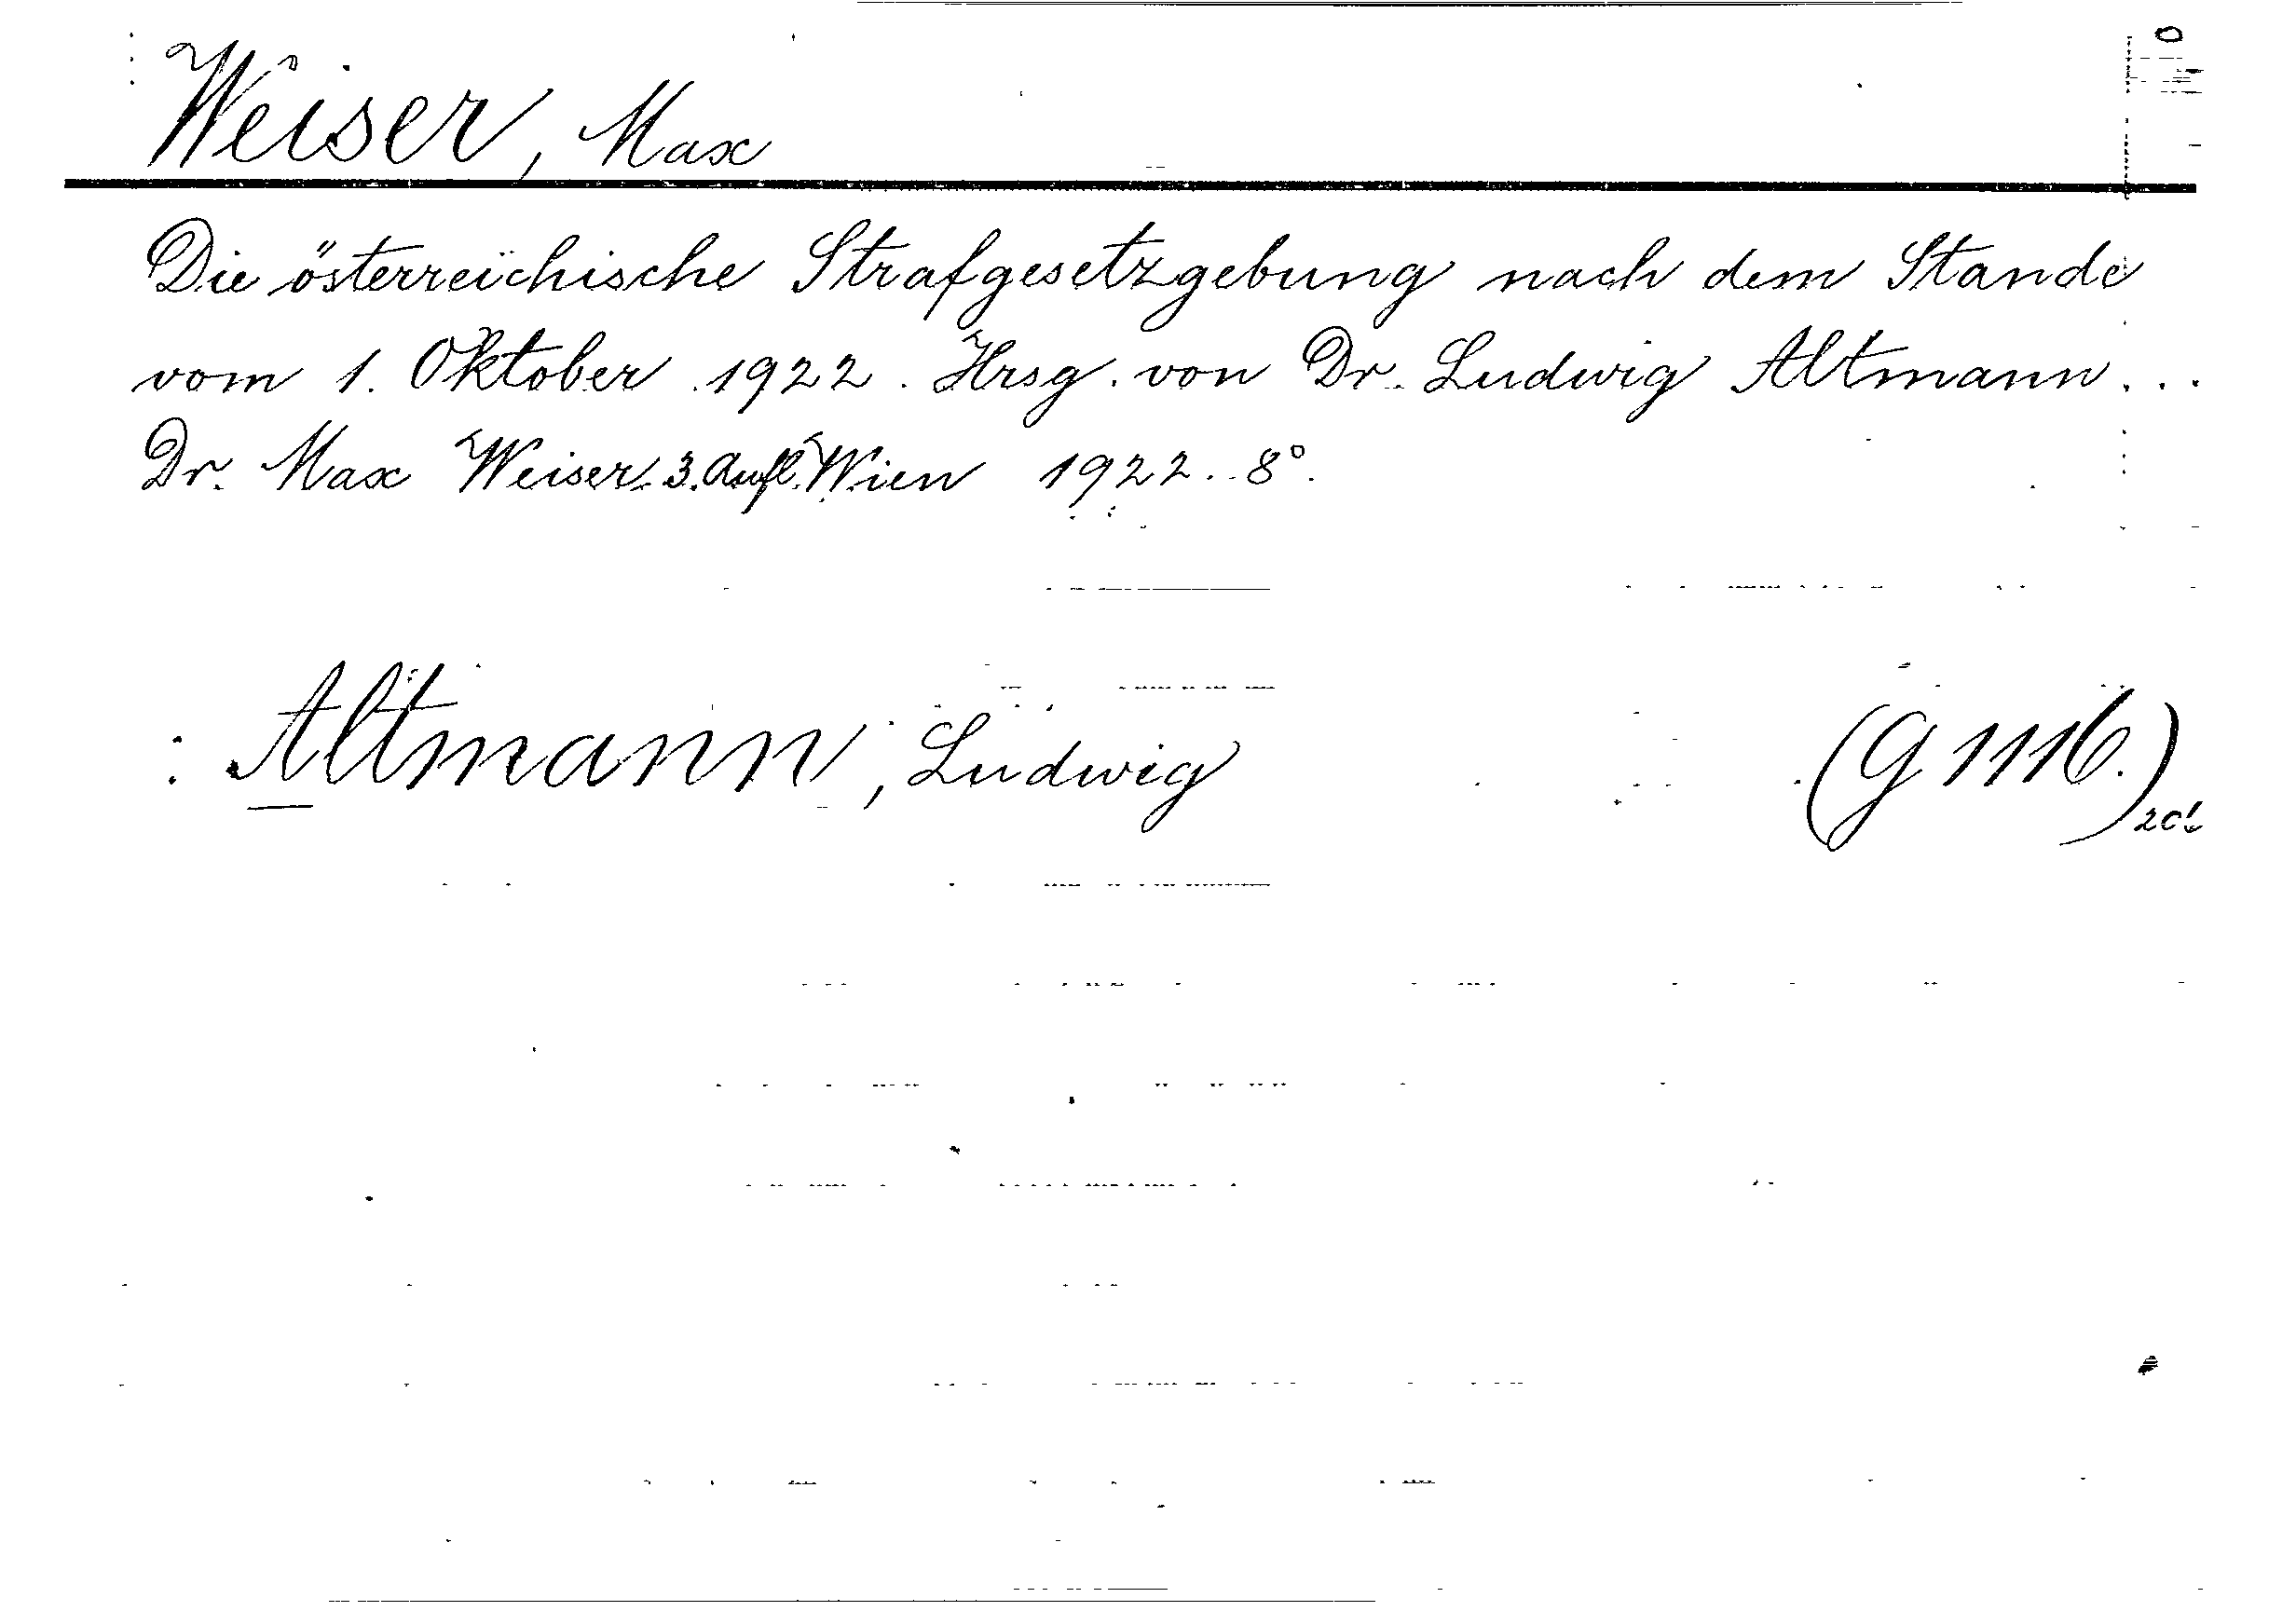 Weiser, Max
Die österreichische Strafgesetzgebung nach dem Stande
vom 1. Oktober 1922. Hrsg. von Dr. Ludwig Altmann...
Dr. Max Weiser. 3. Aufl. Wien 1922. 8°.
: Altmann, Ludwig (G 1116.)